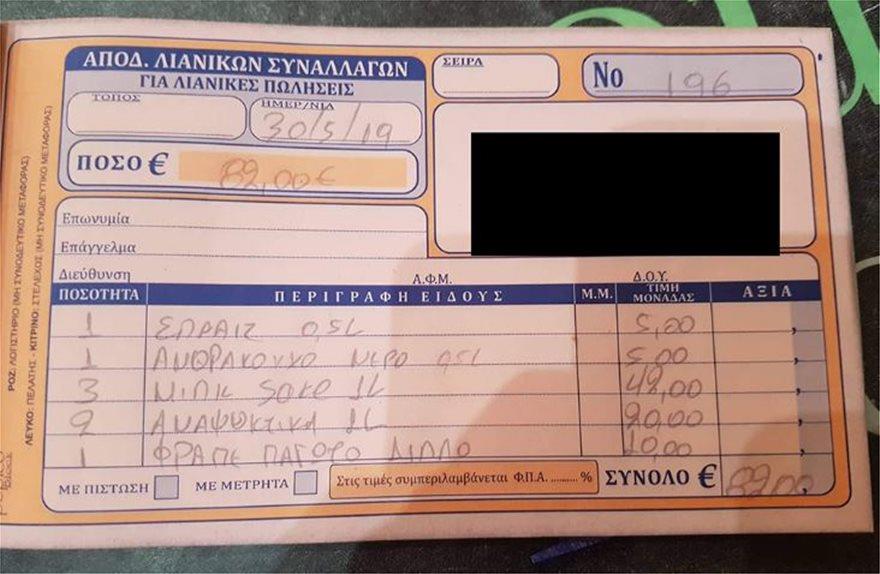 ΑΠΟΔ. ΛΙΑΝΙΚΩΝ ΣΥΝΑΛΛΑΓΩΝ
ΓΙΑ ΛΙΑΝΙΚΕΣ ΠΩΛΗΣΕΙΣ
ΣΕΙΡΑ
Νο 196
ΤΟΠΟΣ
ΗΜΕΡ/ΝΙΑ
30/5/19
ΠΟΣΟ € 82,00€
Επωνυμία
Επάγγελμα
Διεύθυνση Α.Φ.Μ. Δ.Ο.Υ.
ΠΟΣΟΤΗΤΑ ΠΕΡΙΓΡΑΦΗ ΕΙΔΟΥΣ Μ.Μ. ΤΙΜΗ ΜΟΝΑΔΑΣ ΑΞΙΑ
1 ΣΠΡΑΙΤ 0,5L 5,00
1 ΑΝΘΡΑΚΟΥΧΟ ΝΕΡΟ 0,5L 5,00
3 ΜΙΛΚ SAKE 1L 42,00
2 ΑΝΑΨΥΚΤΙΚΑ 1L 20,00
1 ΦΡΑΠΕ ΠΑΓΩΤΟ ΔΙΠΛΟ 10,00
ΜΕ ΠΙΣΤΩΣΗ ΜΕ ΜΕΤΡΗΤΑ Στις τιμές συμπεριλαμβάνεται Φ.Π.Α. .......... % ΣΥΝΟΛΟ € 82,00
ΡΟΖ: ΛΟΓΙΣΤΗΡΙΟ (ΜΗ ΣΥΝΟΔΕΥΤΙΚΟ ΜΕΤΑΦΟΡΑΣ)
ΛΕΥΚΟ: ΠΕΛΑΤΗΣ - ΚΙΤΡΙΝΟ: ΣΤΕΛΕΧΟΣ (ΜΗ ΣΥΝΟΔΕΥΤΙΚΟ ΜΕΤΑΦΟΡΑΣ)